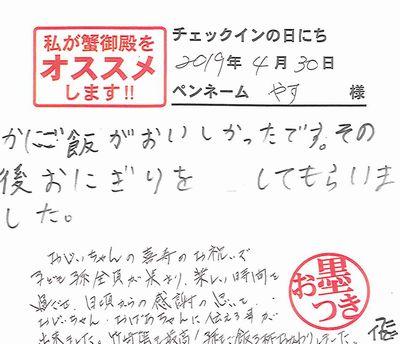 私が蟹御殿を
オススメ
します!!
チェックインの日にち
2019年4月30日
ペンネーム やす 様
かにご飯がおいしかったです。その
後おにぎりを してもらいま
した。
おじいちゃんの喜寿のお祝いで
子ども孫全員が集まり、楽しい時間を
過ごせ、日頃からの感謝の思いを
おじいちゃん・おばあちゃんに伝える事が
出来ました。
お墨
つき